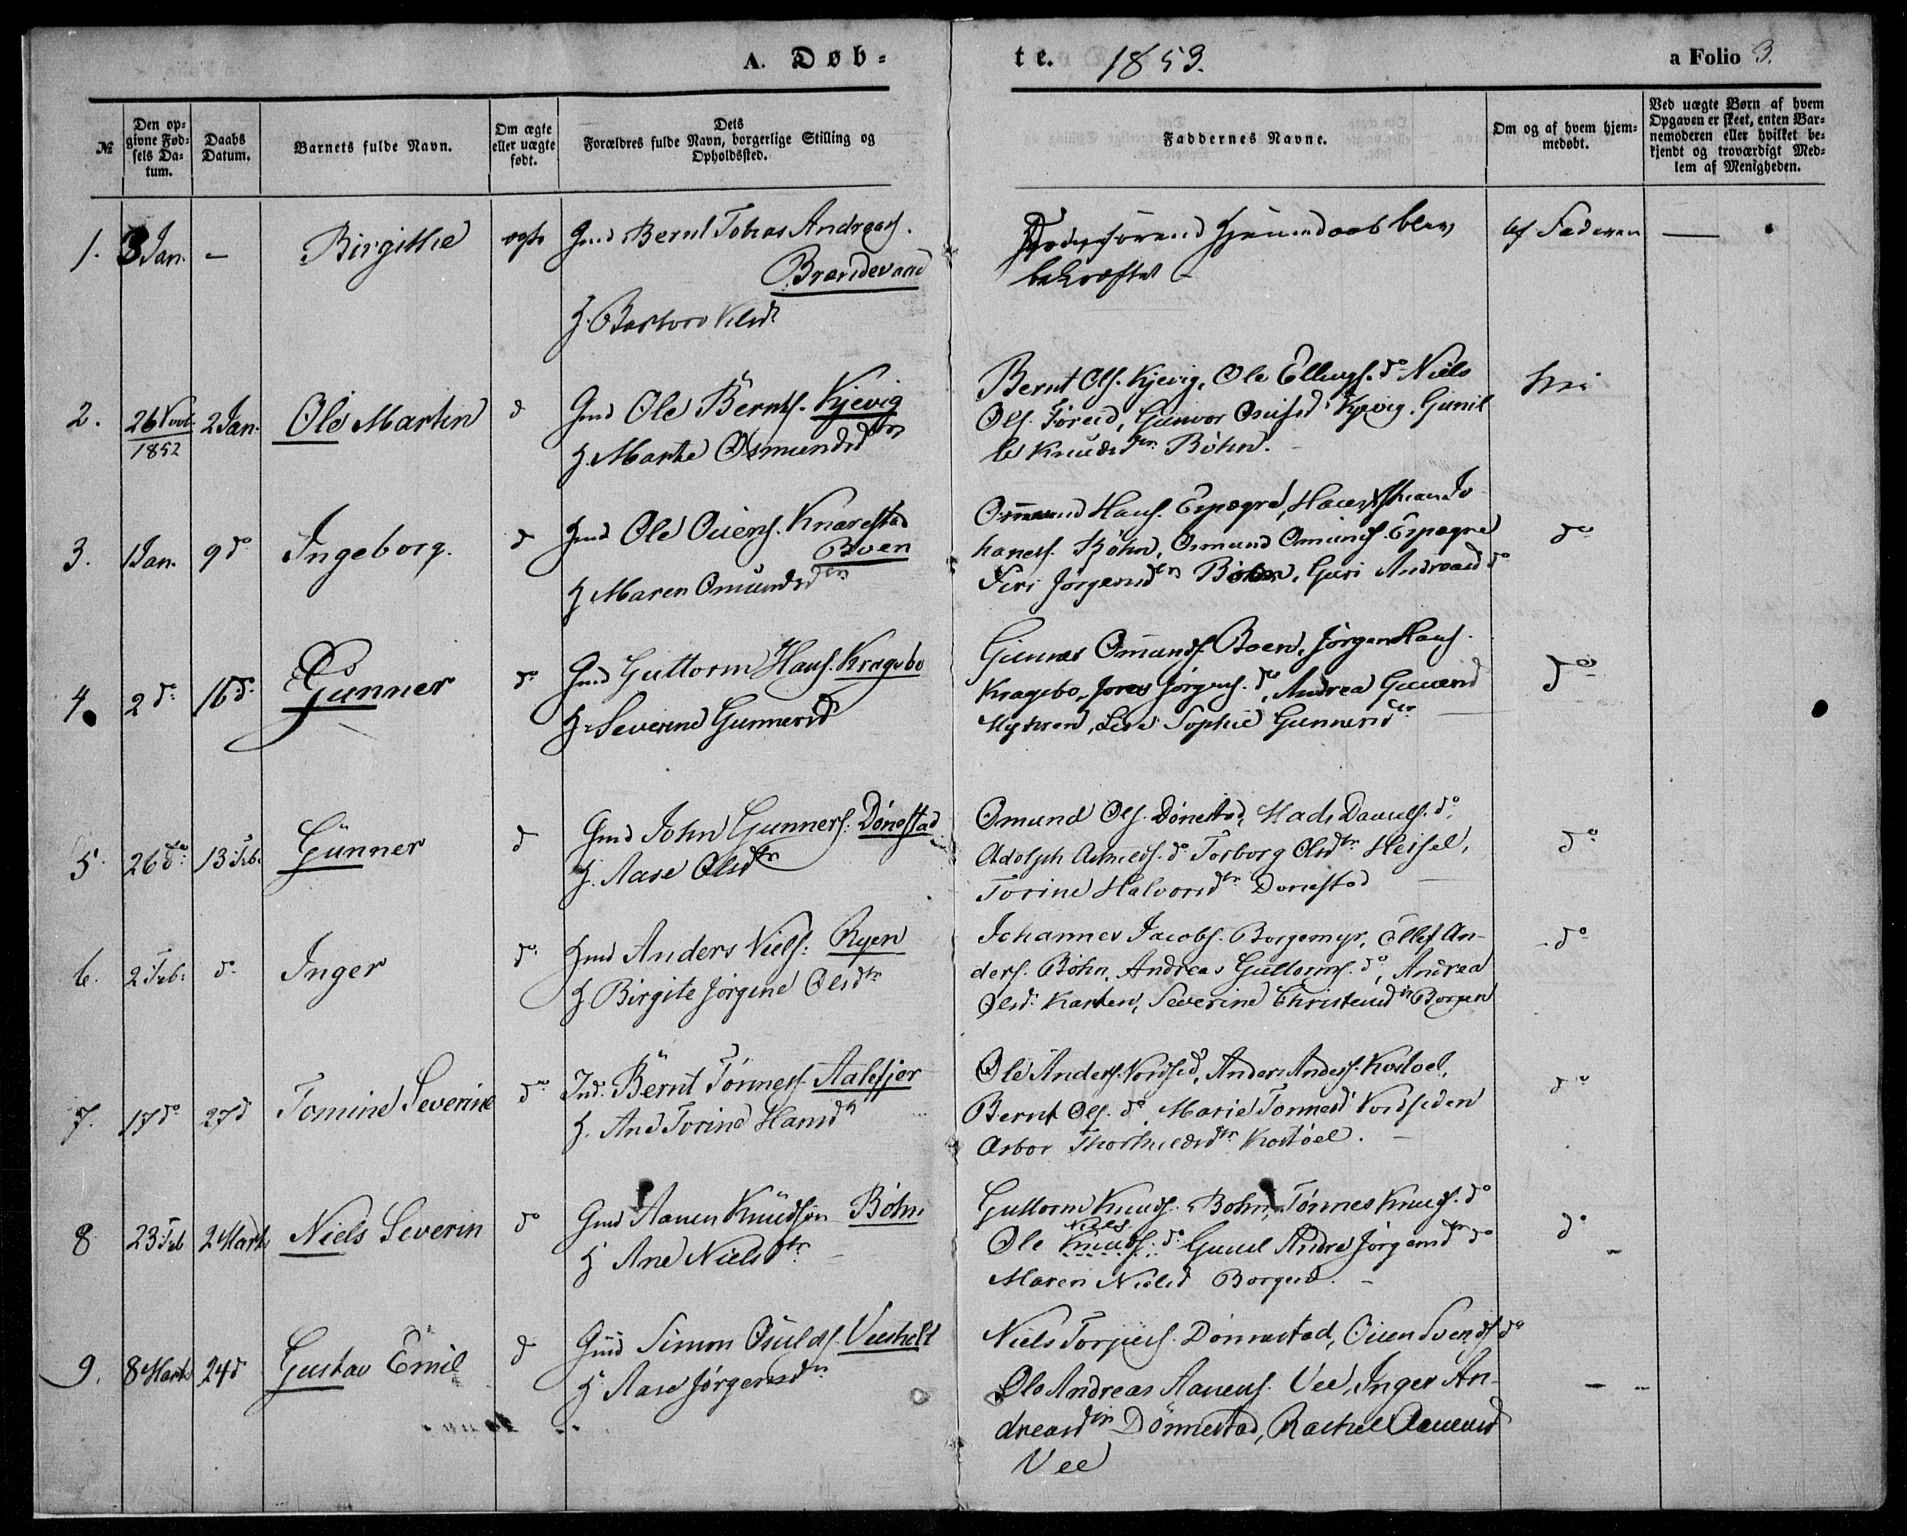 A. Døb-
te. 1853.
a Folio 3.
№
Den op-
givne Fød-
sels Da-
tum.
Daabs
Datum.
Barnets fulde Navn.
Om ægte
eller uægte
født.
Dets
Forældres fulde Navn, borgerlige Stilling og
Opholdssted.
Faddernes Navne.
Om og af hvem hjem-
medøbt.
Ved uægte Børn af hvem
Opgaven er skeet, enten Bar-
nemoderen eller hvilket be-
kjendt og troværdigt Med-
lem af Menigheden.
1. 3 Jan. - Birgithe ægte Gmd Bernt Tobias Andreas.
Brændevand
H.
hjemmedaab blev
bekræftet
af Faderen
2. 26 Novb. 2 Jan. Ole Martin d Gmd Ole Bernts. Kjevig
1852
H. Marte Osmundsdtr
Bernt Ols. Kjevig, Ole Ellings. do Niels
Ols. Kjevig. Gunil
Knudsdtr. Böhn.
3. 1 Jan. 9 do Ingeborg. d Gmd Ole Oiens. Knarestad
Boen
H Maren Omundsdtr
Omund Hans. Espegre,
hanes. Böhn, Osmund Omunds. Espegre
Siri Jørgensdtr Böhn, Guri do
do
4. 2 do 16 do Gunner do Gmd Guttorm Hans. Kragebo
H. Severine Gunnersd
Gunner Omunds. Boen, Jørgen Hans.
Kragebo, Jørgens. do, Andrea Gunnersd
Myhren, Sophie Gunnersdtr
do
5. 26 do 13 Feb. Gunner d Gmd John Gunners. Dønestad
H. Aase Olsdtr
Omund Ols. Dønestad, Mads Daniels. do
Adolph do Torborg Olsdtr Heisel,
Torine Halvorsdtr Dønestad
do
6. 2 Feb. do Inger do Gmd Anders Niels. Ryen
H Birgite Jørgine Olsdtr
Johannes Jacobs. Borgemyr, Ellef An-
ders. Böhn, Andreas Guttorms. do, Andrea
Olsd. Karten, Severine Christensdtr Borgen
do
7. 17 do 27 d Tomine Severine do Ind. Bernt Tønnes. Aalefjer
H. Ane Torine Hansdtr
Ole Anders. Anders Anders. Kostøel,
Bernt Ols. do Marie Tønnesd
Asbor Kostøel.
do
8 23 Feb 2 Marts Niels Severin do Gmd Aanen Knudsen Böhn
H Ane Nielsdtr.
Guttorm Knuds. Bohn, Tønnes Knuds. do
Niels
Ole Knuds. do Gunil Andrea Jørgensdtr do
Maren Nielsd Borgen.
do
9. 8 Marts 24 d Gustav Emil d Gmd Simon Osulds. Veesholt
H Aase Jørgensdtr
Niels Torjus. Dønnestad, Oien Svends. do
Ole Andreas Aanens. Vee, Inger An-
dreasdtr Dønnestad, Rachel Aanensd
Vee